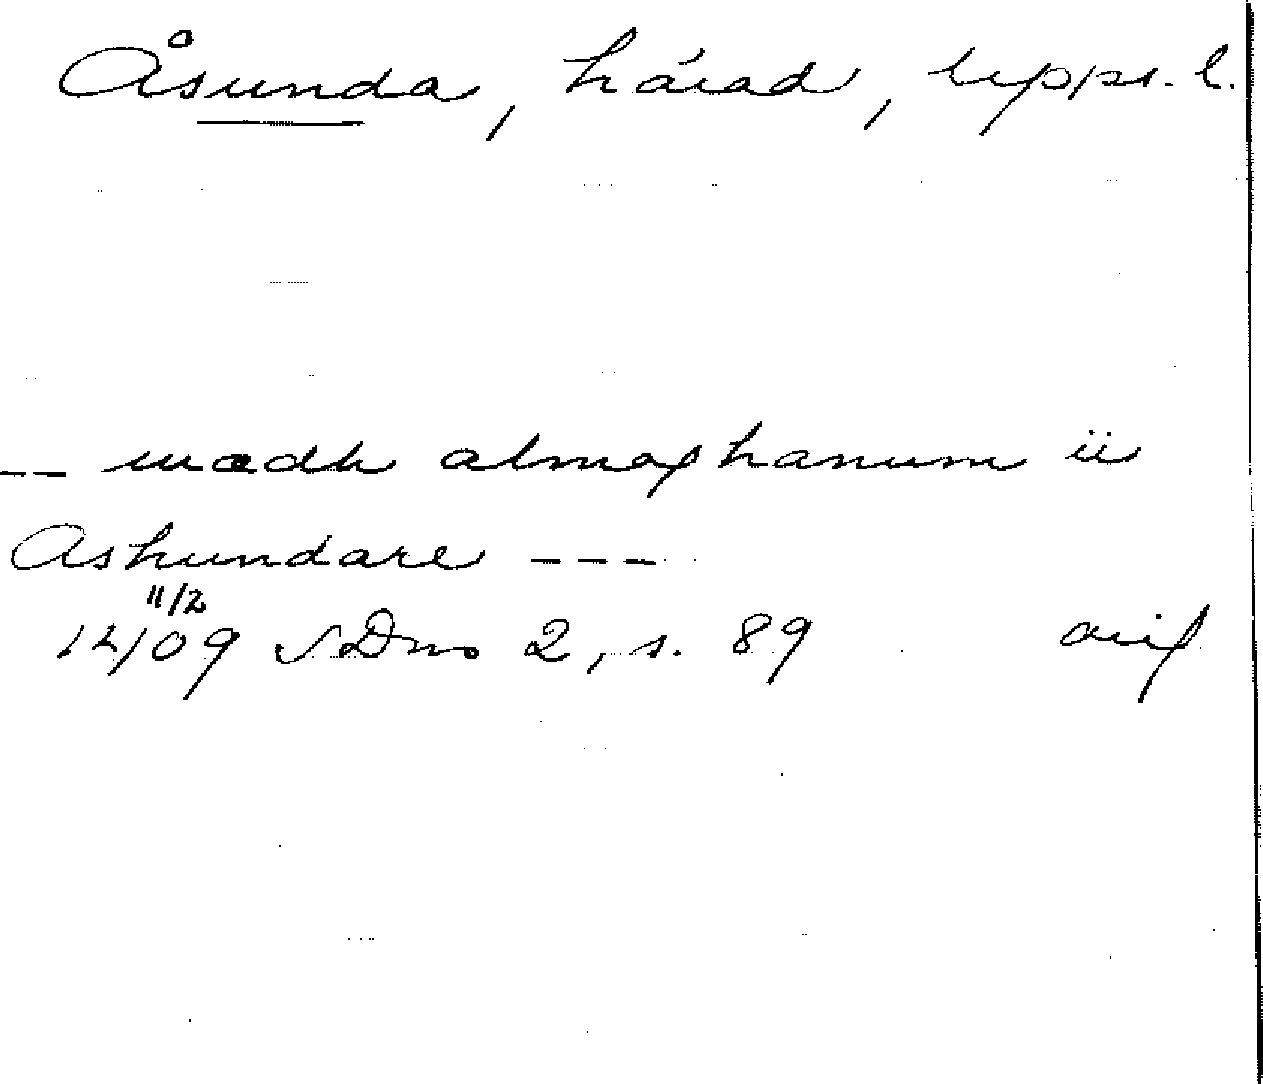 Åsunda, härad, Upps. l.
-- madh almoghanum ii
Ashundare ---
11/2
1409 SDns 2, s. 89 orig